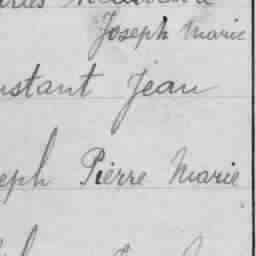 Joseph Marie
nstant Jean
eph Pierre Marie